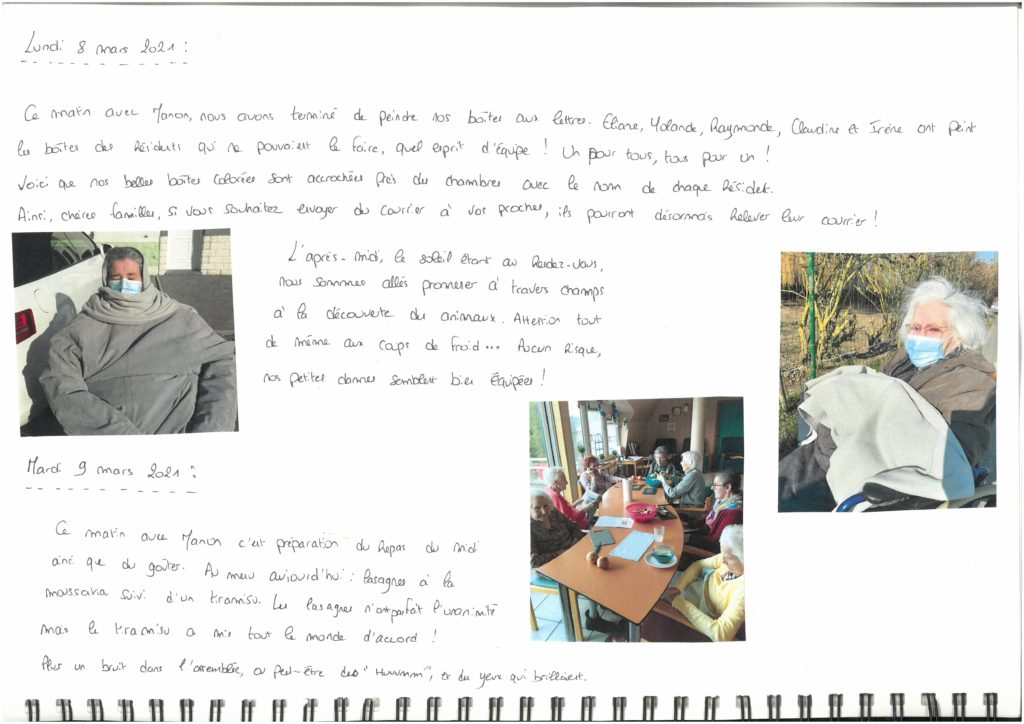 Lundi 8 mars 2021 :
Ce matin avec Manon, nous avons terminé de peindre nos boîtes aux lettres. Eliane, Yolande, Raymonde, Claudine et Irène ont peint
les boîtes des Résidents qui ne pouvaient le faire, quel esprit d'équipe ! Un pour tous, tous pour un !
Voici que nos belles boîtes colorées sont accrochées près des chambres avec le nom de chaque Résident.
Ainsi, chères familles, si vous souhaitez envoyer du courrier à vos proches, ils pourront désormais relever leur courrier !
L'après-midi, le soleil étant au Rendez-vous,
nous sommes allés promener à travers champs
à la découverte des animaux. Attention tout
de même aux coups de froid... Aucun risque,
nos petites dames semblent bien équipées !
Mardi 9 mars 2021 :
Ce matin avec Manon c'est préparation du repas du midi
ainsi que du goûter. Au menu aujourd'hui : lasagnes à la
moussaka suivi d'un tiramisu. Les lasagnes n'ont pas fait l'unanimité
mais le tiramisu a mis tout le monde d'accord !
Plus un bruit dans l'assemblée, ou peut-être des "Huummm", et des yeux qui brillaient.